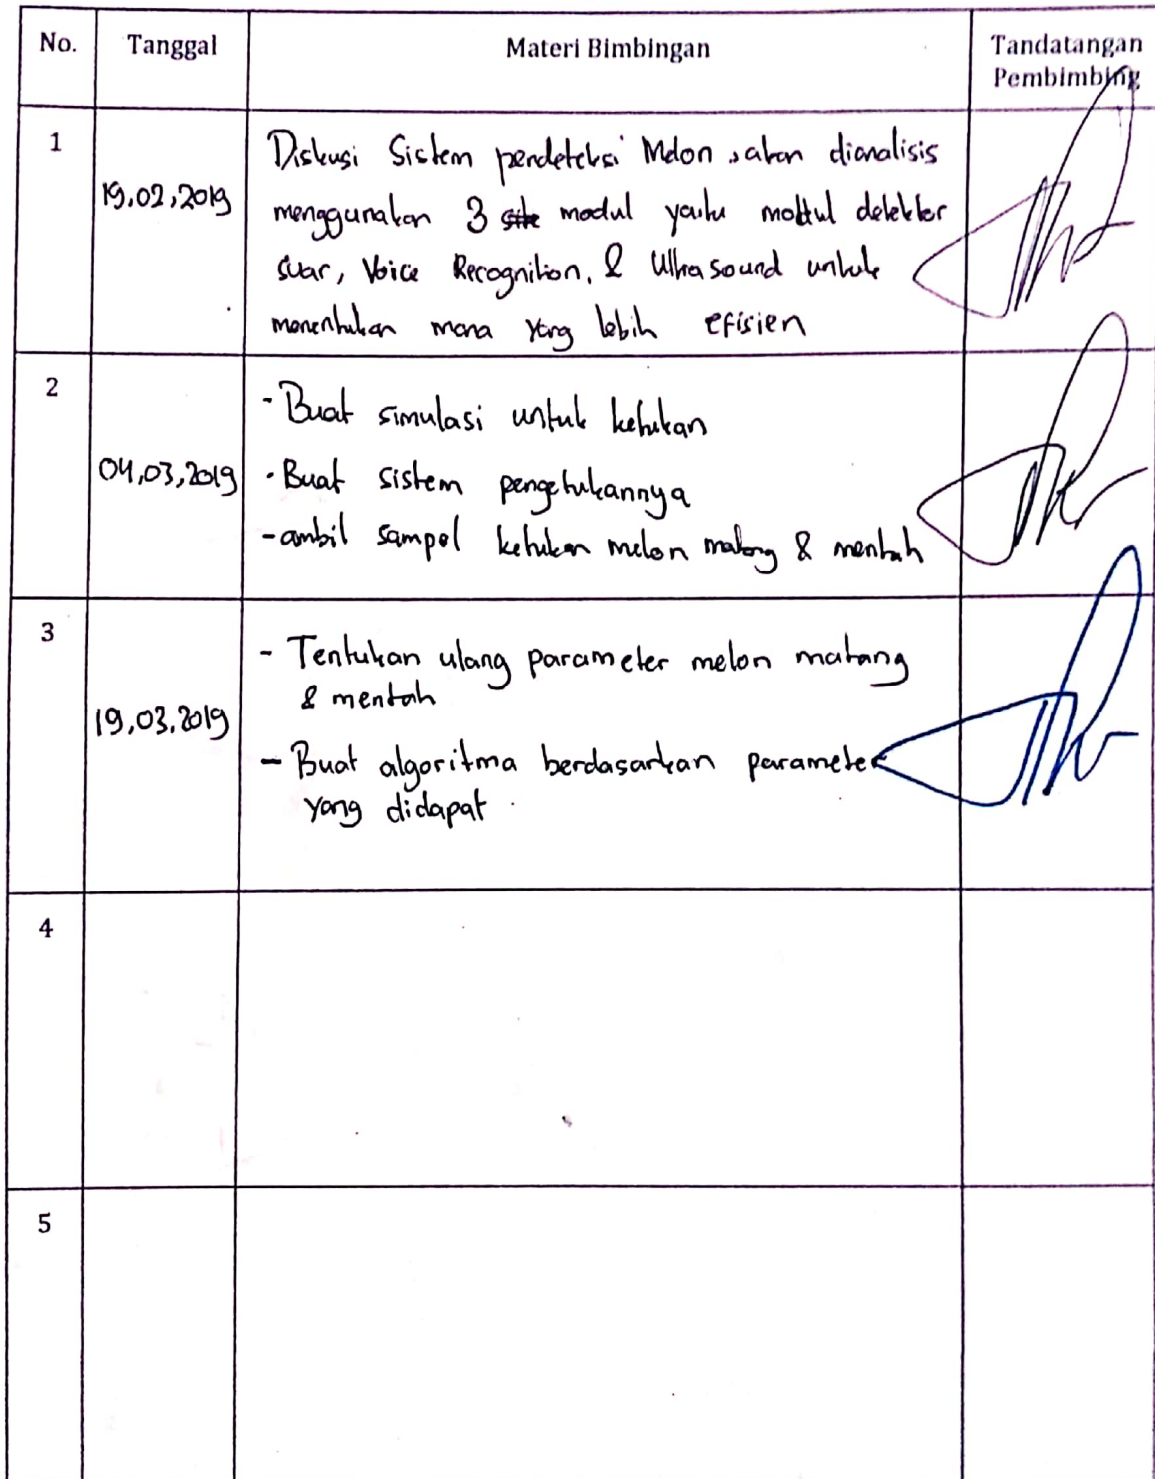 No. Tanggal Materi Bimbingan Tandatangan
Pembimbing
1
19,02,2019
Diskusi Sistem pendeteksi Melon, akan dianalisis
menggunakan 3 modul yaitu modul detektor
suar, Voice Recognition, & Ultrasound untuk
menentukan mana yang lebih efisien
2
04,03,2019
- Buat simulasi untuk ketukan
- Buat sistem pengetukannya
- ambil sampel ketukan melon matang & mentah
3
19,03,2019
- Tentukan ulang parameter melon matang
& mentah
- Buat algoritma berdasarkan parameter
yang didapat
4
5